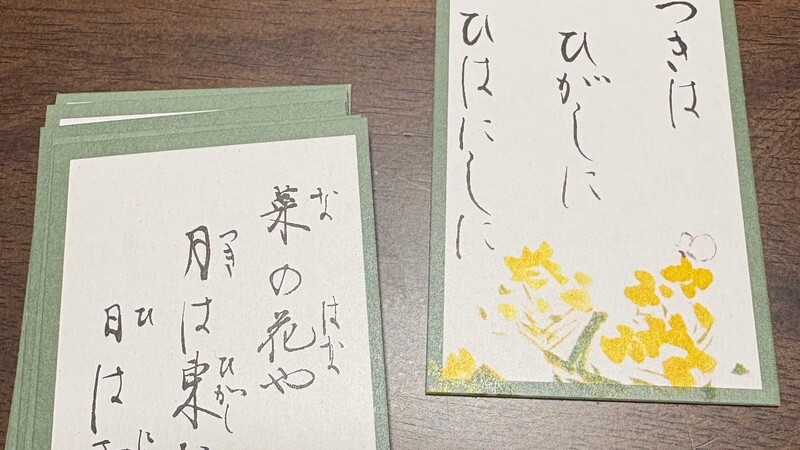 つきは
ひがしに
ひはにしに
菜の花や
な はな
月は東
つき ひがし
日は
ひ に